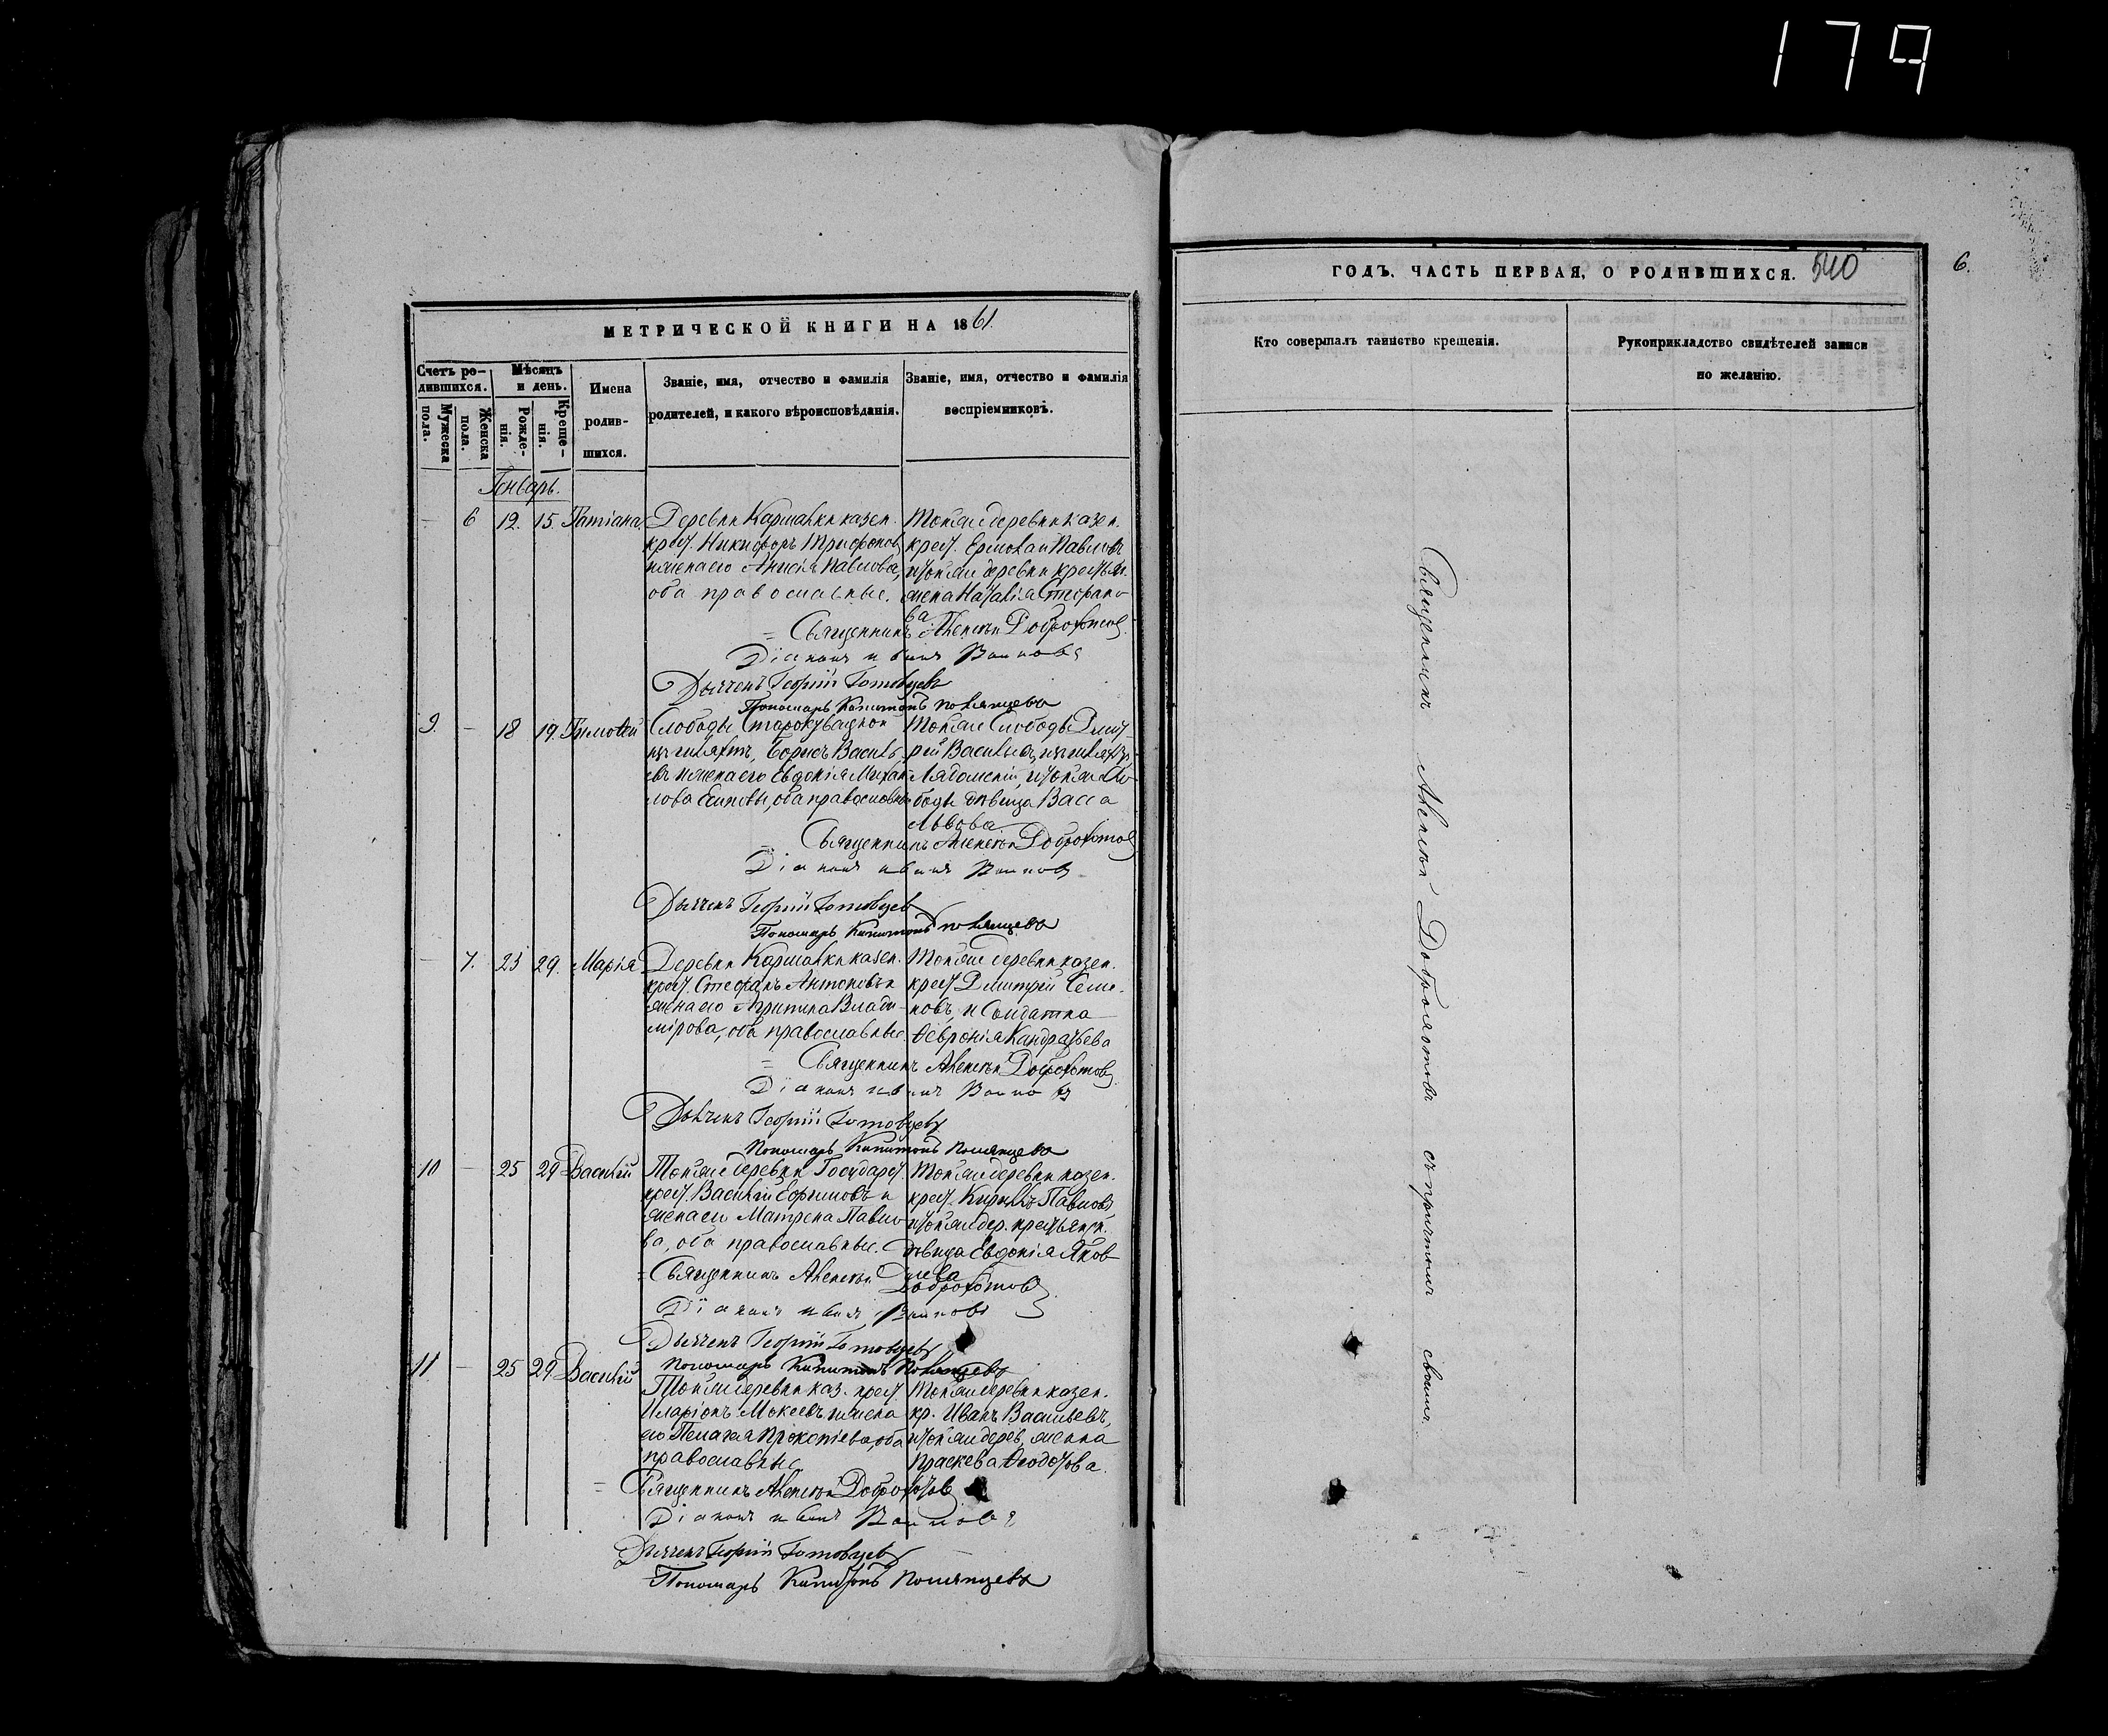 179
МЕТРИЧЕСКОЙ КНИГИ НА 1861
Счетъ ро-
дившихся.
Мужеска
пола.
Женска
пола.
Мѣсяцъ
и день.
Рожде-
нія.
Креще-
нія.
Имена
родив-
шихся.
Званіе, имя, отчество и фамилія
родителей, и какого вѣроисповѣданія.
Званіе, имя, отчество и фамилія
воспріемниковъ.
Генварь.
— 6 12. 15. Татіана.
Деревни Кармалки казен.
крест. Никифоръ Трифоновъ
и жена его Анисія Павлова,
оба православные.
Тойже деревни казен.
крест. Ермолай Павловъ
и тойже деревни крестьян.
жена Наталія Стефано-
ва
Священникъ Алексѣй Доброхотовъ.
Діаконъ Иванъ
Дьячекъ Георгій Готовцевъ
Пономарь Капитонъ
9. — 18 19. Тимоѳей
Слободы
Борисъ Василь-
евъ и жена его Евдокія Михай-
лова Есиповы, оба православные
Тойже Слободы Дмит-
рій Васильевъ
и тойже Сло-
боды дѣвица Васса
Львова
Священникъ Алексѣй Доброхотовъ
Діаконъ Иванъ
Дьячекъ Георгій Готовцевъ
Пономарь Капитонъ
— 7. 23 29. Марія
Деревни Кармалки казен.
крест. Стефанъ Антоновъ и
жена его Агрипина Влади-
мірова, оба православные.
Тойже деревни казен.
крест. Дмитрій Семе-
новъ, и Солдатка
Ѳевронія Кандратьева
Священникъ Алексѣй Доброхотовъ
Діаконъ Иванъ
Дьячекъ Георгій Готовцевъ
Пономарь Капитонъ
10 — 25 29 Василій
Тойже деревни Государст.
крест. Василій Ефимовъ и
жена его Матрена Павло-
ва, оба православные.
Тойже деревни казен.
крест. Кирилъ Павловъ
и тойже дер. крестьянск.
дѣвица Евдокія Яков-
лева
Священникъ Алексѣй Доброхотовъ.
Діаконъ Иванъ
Дьячекъ Георгій Готовцевъ
Пономарь Капитонъ
11. — 25 29 Василій
Тойже деревни каз. крест.
Иларіонъ Мокеевъ и жена
его Пелагея Прокопіева, оба
православные.
Тойже деревни казен.
кр. Иванъ Васильевъ,
и тойже дерев. женка
Праскева Ѳеодотова.
Священникъ Алексѣй Доброхотовъ
Діаконъ Иванъ
Дьячекъ Георгій Готовцевъ
Пономарь Капитонъ
ГОДЪ. ЧАСТЬ ПЕРВАЯ, О РОДИВШИХСЯ. 540
6.
Кто совершалъ таинство крещенія.
Рукоприкладство свидѣтелей записи
по желанію.
Священникъ Алексѣй Доброхотовъ съ причтомъ своимъ.